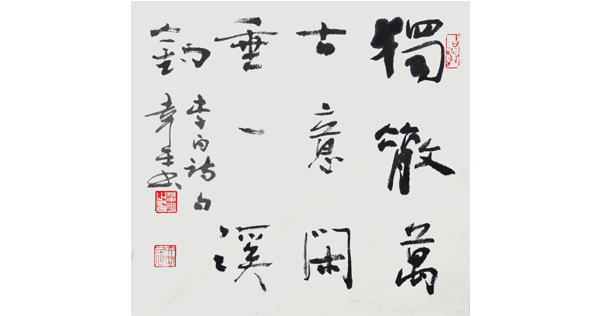 獨散萬
古意閑
垂一溪
釣
李白詩句
書